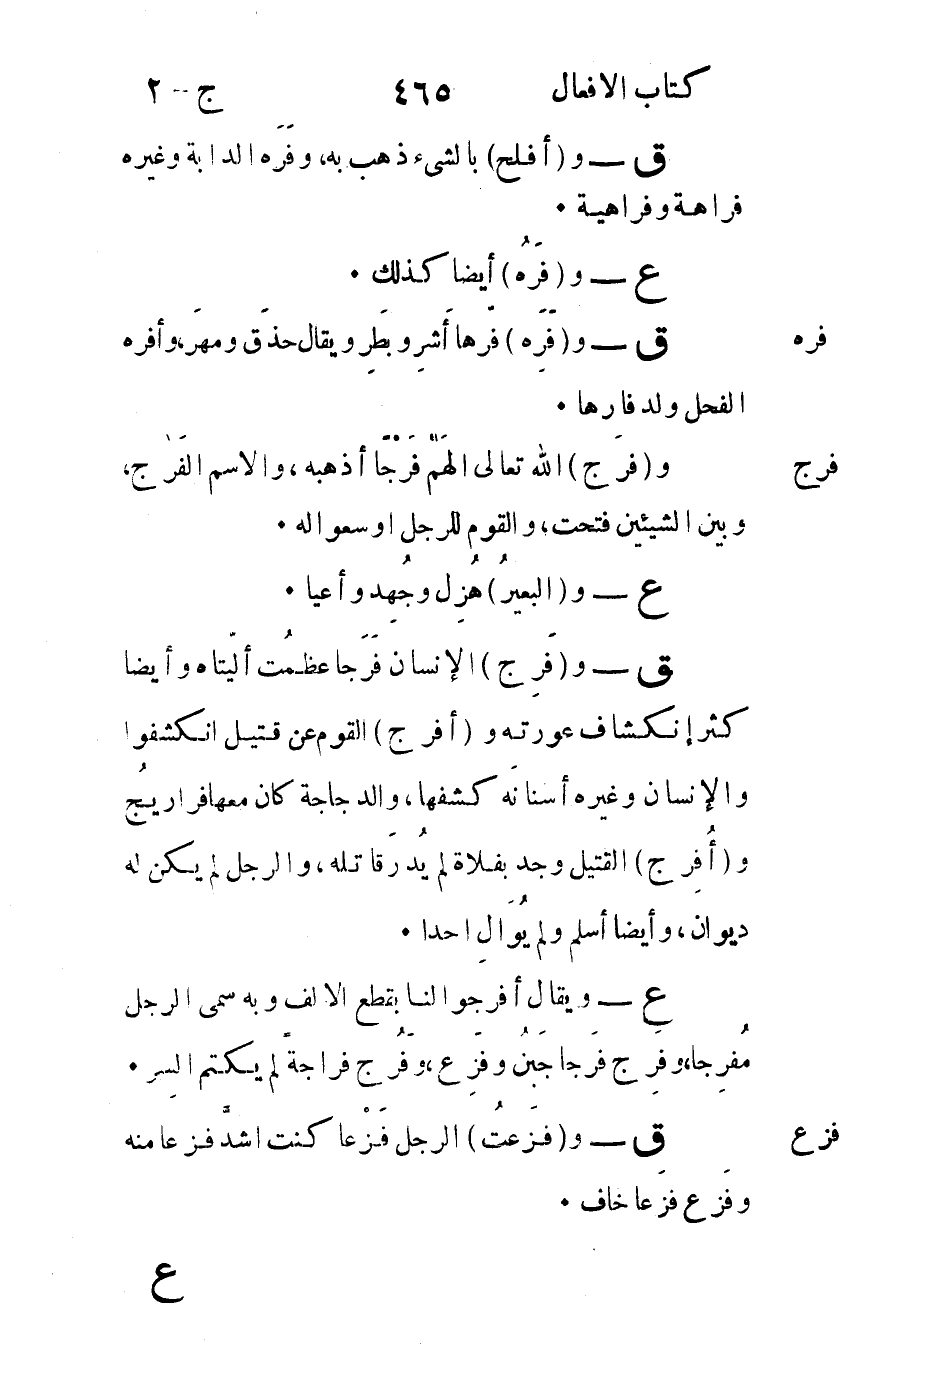 كتاب الافعال ٤٦٥ ج--٢
ق — و (أفلح) بالشىء ذهب به، وفَرَه الدابة وغيره
فراهة وفراهية •
ع — و (فَرُه) أيضا كذلك •
فره ق — و (فَرِه) فَرَها أَشِر وبَطِر ويقال حذَق ومهَر، وأفره
الفحل ولد فارها •
فرج و (فرَج) الله تعالى الهَمّ فَرْجًا أذهبه، والاسم الفَرَج،
وبين الشيئين فتحت، والقوم للرجل اوسعوا له •
ع — و (البعيرُ) هُزِل وجُهِد وأعيا •
ق — و (فَرِج) الإنسان فَرَجا عظُمت أليتاه وأيضا
كثر إنكشاف عورته و (أفرج) القوم عن قتيل انكشفوا
والإنسان وغيره أسنانَه كشفها، والدجاجة كان معها فراريجُ
و (أُفرِج) القتيل وجد بفلاة لم يُدرَ قاتله، والرجل لم يكن له
ديوان، وأيضا أسلم ولم يُوَالِ احدا •
ع — ويقال أفرجوا لنا بقطع الالف وبه سمى الرجل
مُفرِجا، وفَرِج فَرَجا جَبُن وفَزِع، وفَرُج فراجةً لم يكتم السِر •
فزع ق — و (فَزَعتُ) الرجل فَزْعا كنت اشدَّ فزعا منه
وفَزِع فَزَعا خاف •
ع